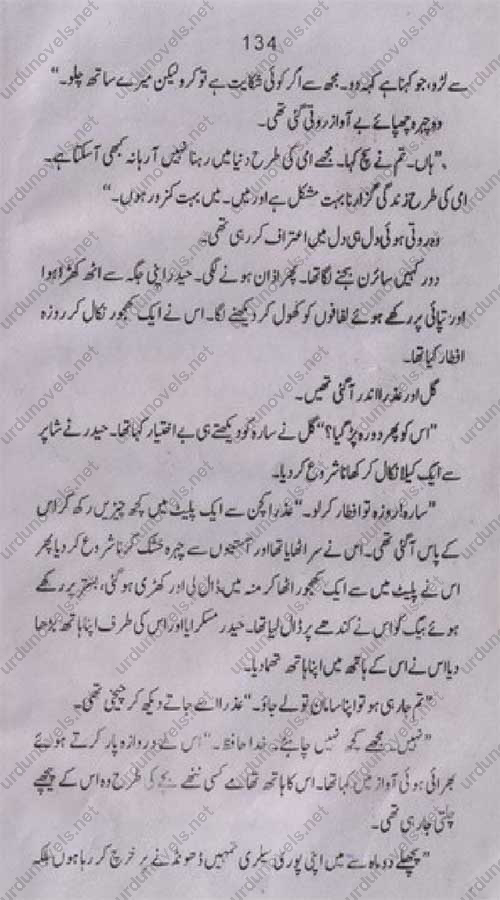 134
سے لڑو، جو کہنا ہے کہہ دو۔ مجھ سے اگر کوئی شکایت ہے تو کرو لیکن میرے ساتھ چلو۔“
وہ چہرہ چھپائے بے آواز روتی گئی تھی۔
”ہاں۔ تم نے سچ کہا۔ مجھے امی کی طرح دنیا میں رہنا نہیں آ رہا نہ کبھی آ سکتا ہے۔
امی کی طرح زندگی گزارنا بہت مشکل ہے اور میں۔ میں بہت کمزور ہوں۔“
وہ روتی ہوئی دل ہی دل میں اعتراف کر رہی تھی۔
دور کہیں سائرن بجنے لگا تھا۔ پھر اذان ہونے لگی۔ حیدر اپنی جگہ سے اٹھ کھڑا ہوا
اور تپائی پر رکھے ہوئے لفافوں کو کھول کر دیکھنے لگا۔ اس نے ایک کھجور نکال کر روزہ
افطار کیا تھا۔
گل اور عذرا اندر آ گئی تھیں۔
”اس کو پھر دورہ پڑ گیا؟“ گل نے سارہ کو دیکھتے ہی بے اختیار کہا تھا۔ حیدر نے شاپر
سے ایک کیلا نکال کر کھانا شروع کر دیا۔
”سارہ! روزہ تو افطار کر لو۔“ عذرا کچن سے ایک پلیٹ میں کچھ چیزیں رکھ کر اس
کے پاس آ گئی تھی۔ اس نے سر اٹھایا تھا اور آستینوں سے چہرہ خشک کرنا شروع کر دیا پھر
اس نے پلیٹ میں سے ایک کھجور اٹھا کر منہ میں ڈال لی اور کھڑی ہو گئی، بستر پر رکھے
ہوئے بیگ کو اس نے کندھے پر ڈال لیا تھا۔ حیدر مسکرایا اور اس کی طرف اپنا ہاتھ بڑھا
دیا اس نے اس کے ہاتھ میں اپنا ہاتھ تھما دیا۔
”تم جا رہی ہو تو اپنا سامان تو لے جاؤ۔“ عذرا اسے جاتے دیکھ کر چیخی تھی۔
”نہیں۔ مجھے کچھ نہیں چاہئے۔ خدا حافظ۔“ اس نے دروازہ پار کرتے ہوئے
بھرائی ہوئی آواز میں کہا تھا۔ اس کا ہاتھ تھامے کسی ننھے بچے کی طرح وہ اس کے پیچھے
چلتی جا رہی تھی۔
”پچھلے دو ماہ سے میں اپنی پوری سیلری تمہیں ڈھونڈنے پر خرچ کر رہا ہوں بلکہ
urdunovels.net